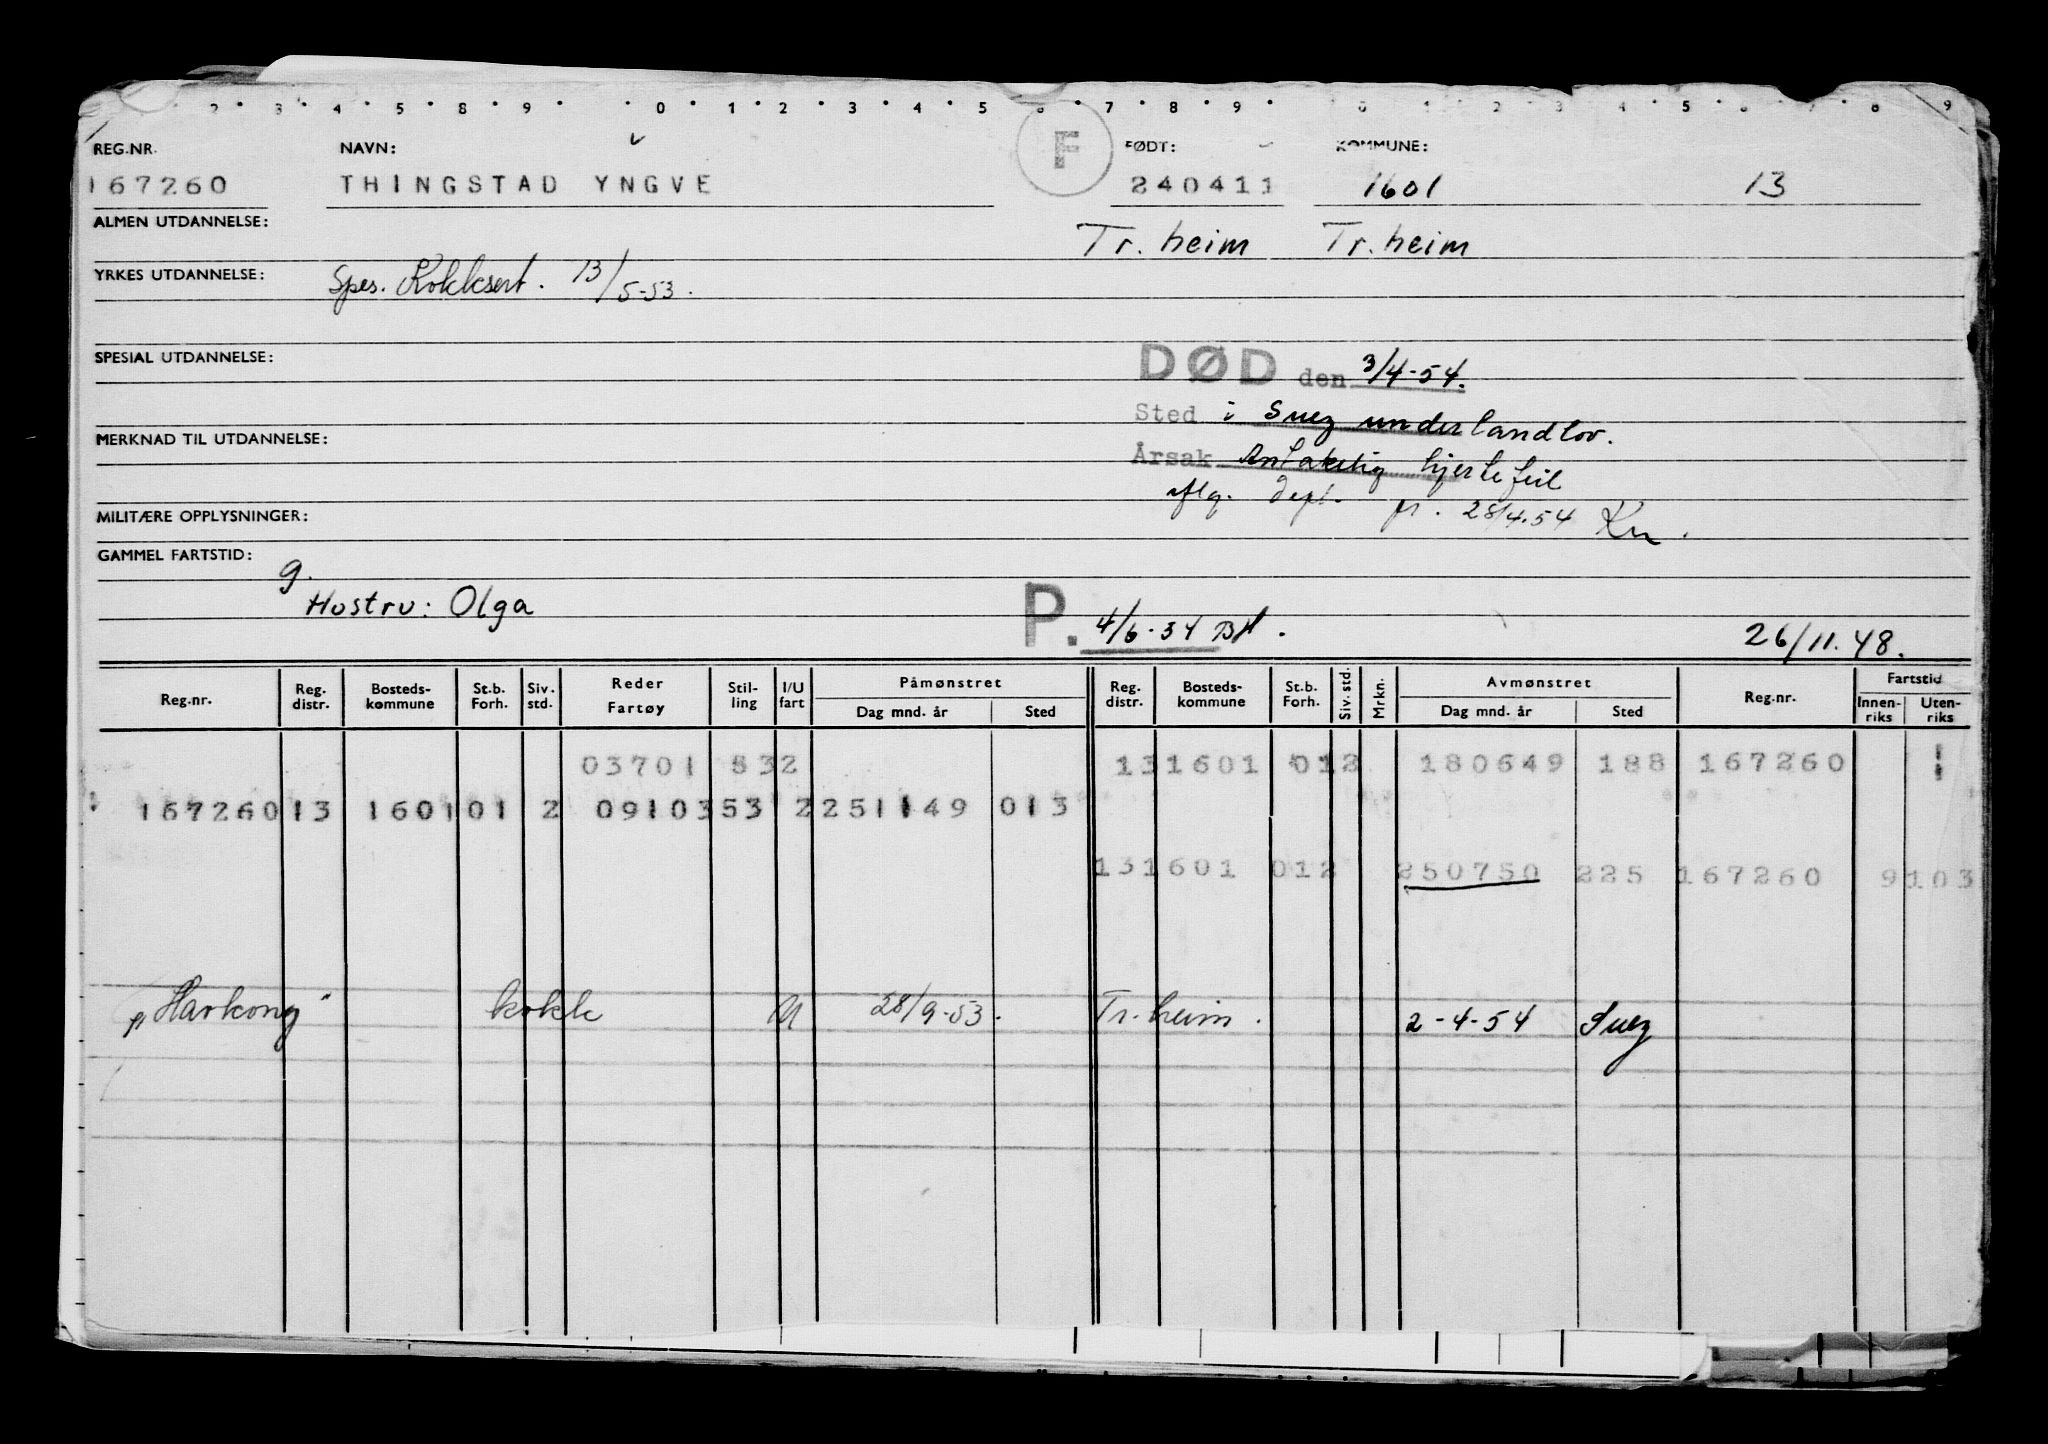 2 · 3 · 4 · 5 · 8 · 9 · 0 · 1 · 2 · 3 · 4 · 5 · 6 · 7 · 8 · 9 · 0 1 2 3 4 5 8 9
REG.NR. NAVN: F FØDT: KOMMUNE:
167260 THINGSTAD YNGVE 240411 1601 13
ALMEN UTDANNELSE: Tr. heim Tr. heim
YRKES UTDANNELSE: Spes. Kokksert. 13/5-53.
SPESIAL UTDANNELSE: DØD den 3/4-54.
Sted i Suez under landlov.
MERKNAD TIL UTDANNELSE:
Årsak Antakelig hjertefeil
iflg. Dept. pr. 28/4.54 Kn.
MILITÆRE OPPLYSNINGER:
GAMMEL FARTSTID:
g.
Hustru: Olga P. 4/6-54 BH. 26/11.48.
Reg.nr. Reg. distr. Bosteds- kommune St.b. Forh. Siv. std. Reder Fartøy Stil- ling I/U fart Påmønstret Dag mnd. år Sted Reg. distr. Bosteds- kommune St.b. Forh. Siv. std. Mrkn. Avmønstret Dag mnd. år Sted Reg.nr. Fartstid Innen- riks Uten- riks
03701 532 131601 012 180649 188 167260
167260 13 1601 01 2 09103 53 2 251149 013
131601 012 250750 225 167260 9103
"Havkong" kokk U 28/9-53. Tr. heim. 2-4-54 Suez